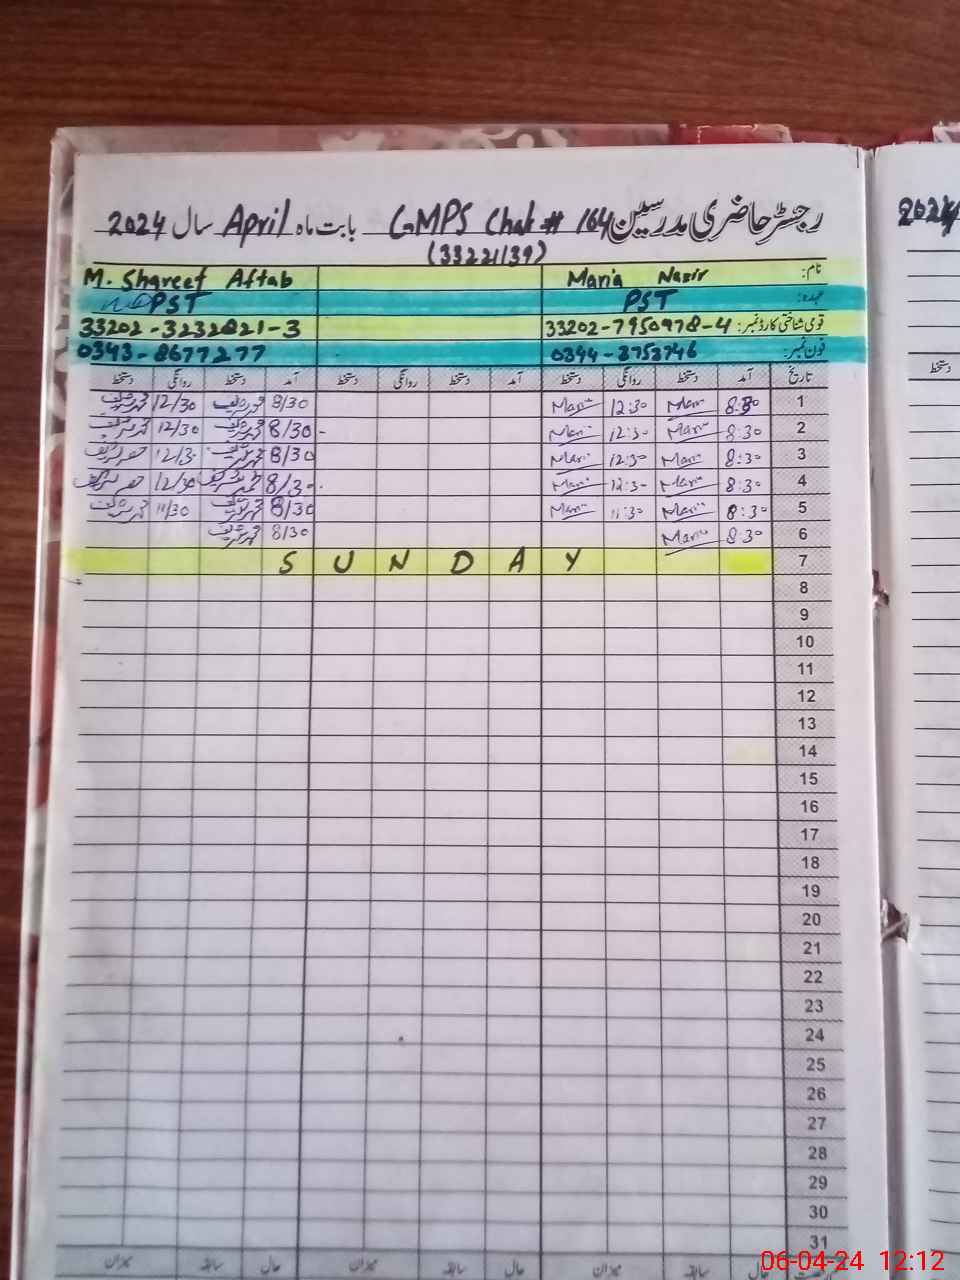 رجسٹر حاضری مدرسین GMPS Chak # 164 بابت ماہ April سال 2024
(33221139)
نام: Maria Nazir M. Shareef Aftab
عہدہ: PST PST
قومی شناختی کارڈ نمبر: 33202-7950978-4 33202-3232821-3
فون نمبر: 0344-8753746 0343-8677277
تاریخ آمد دستخط روانگی دستخط آمد دستخط روانگی دستخط آمد دستخط روانگی دستخط
1 8:30 Maria 12:30 Maria 8/30 محمد شریف 12/30 محمد شریف
2 8:30 Maria 12:30 Maria 8/30 محمد شریف 12/30 محمد شریف
3 8:30 Maria 12:30 Maria 8/30 محمد شریف 12/30 محمد شریف
4 8:30 Maria 12:30 Maria 8/30 محمد شریف 12/30 محمد شریف
5 8:30 Maria 11:30 Maria 8/30 محمد شریف 11/30 محمد شریف
6 8:30 Maria 8/30 محمد شریف
7 SUNDAY
8
9
10
11
12
13
14
15
16
17
18
19
20
21
22
23
24
25
26
27
28
29
30
31
حال سابقہ میزان حال سابقہ میزان حال سابقہ میزان
2024
دستخط
06-04-24 12:12